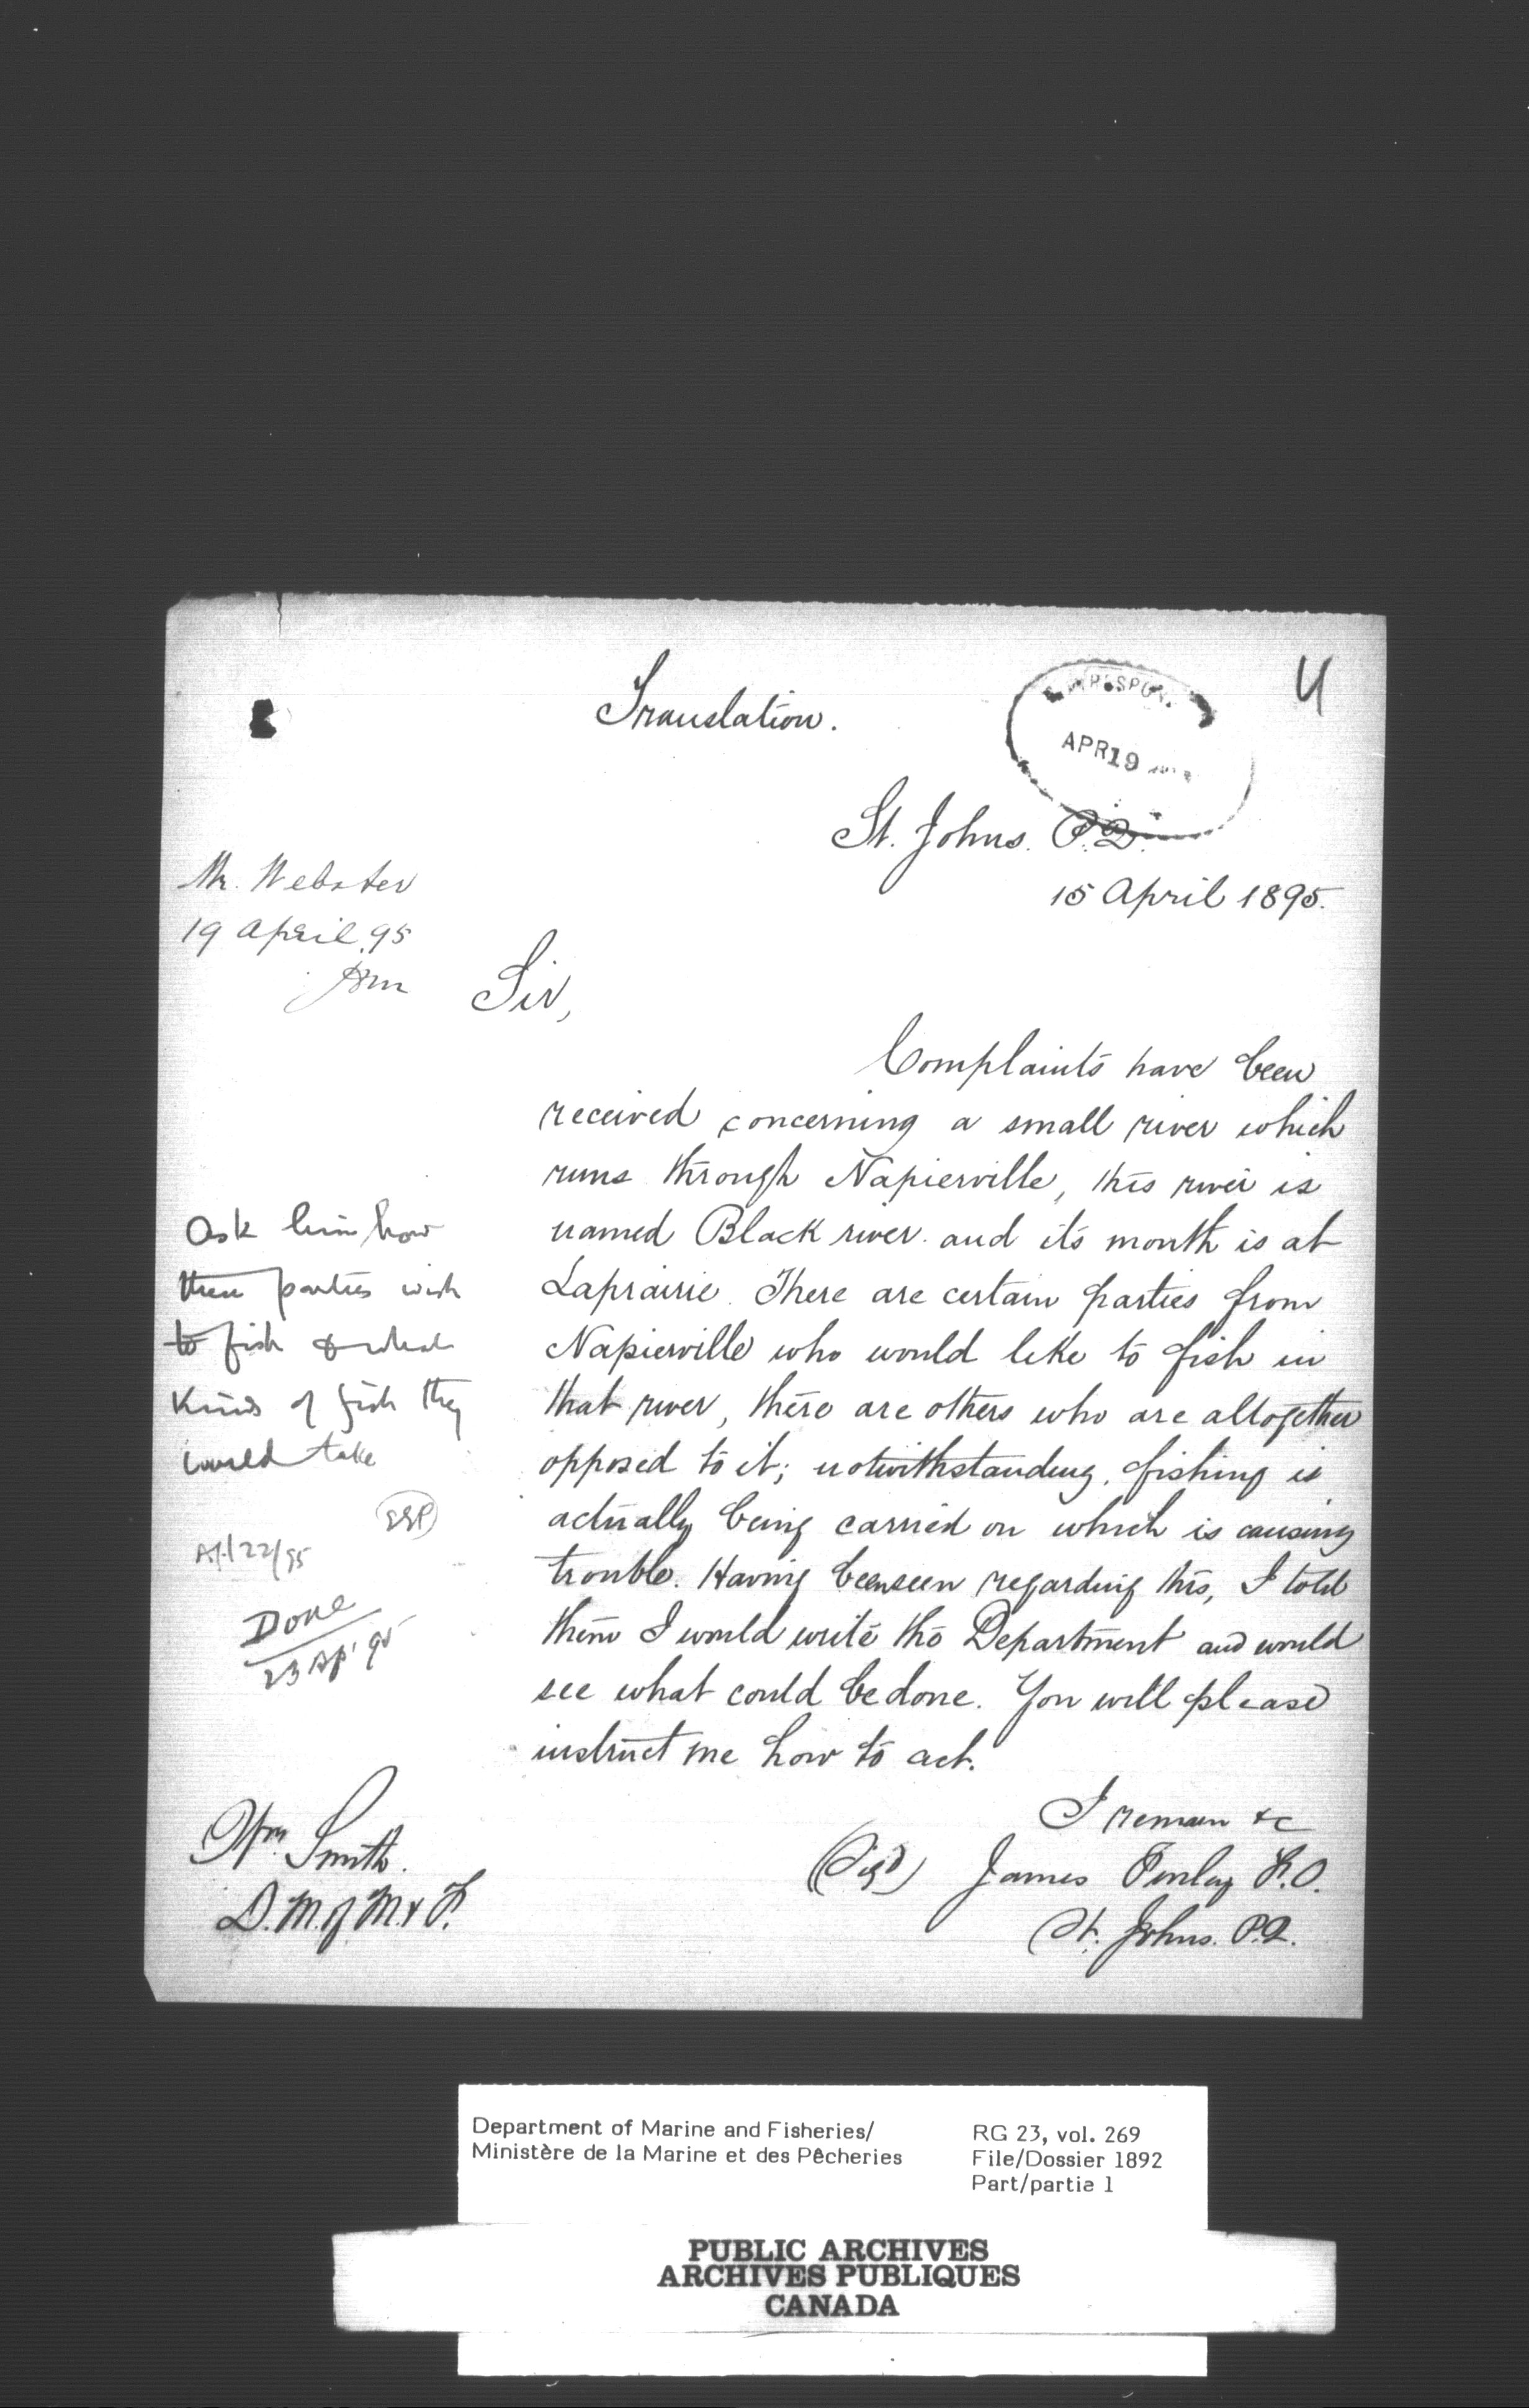 4
Translation.
CORRESPON.
APR 19
St. Johns. P.Q.
15 April 1895.
Mr. Webster
19 April 95
Sir,
Complaints have been
received concerning a small river which
runs through Napierville, this river is
named Black river. and its mouth is at
Laprairie. There are certain parties from
Napierville who would like to fish in
that river, there are others who are altogether
opposed to it; notwithstanding, fishing is
actually being carried on which is causing
trouble. Having been seen regarding this, I told
them I would write the Department and would
see what could be done. You will please
instruct me how to act.
I remain &c
(Sigd) James Finlay F.O.
St. Johns. P.Q.
Ask him how
these parties wish
to fish & what
kinds of fish they
would take
Apl 22/95
Done
23 Ap' 95
Wm. Smith.
D.M. of M. & F.
Department of Marine and Fisheries/
Ministère de la Marine et des Pêcheries
RG 23, vol. 269
File/Dossier 1892
Part/partie 1
PUBLIC ARCHIVES
ARCHIVES PUBLIQUES
CANADA